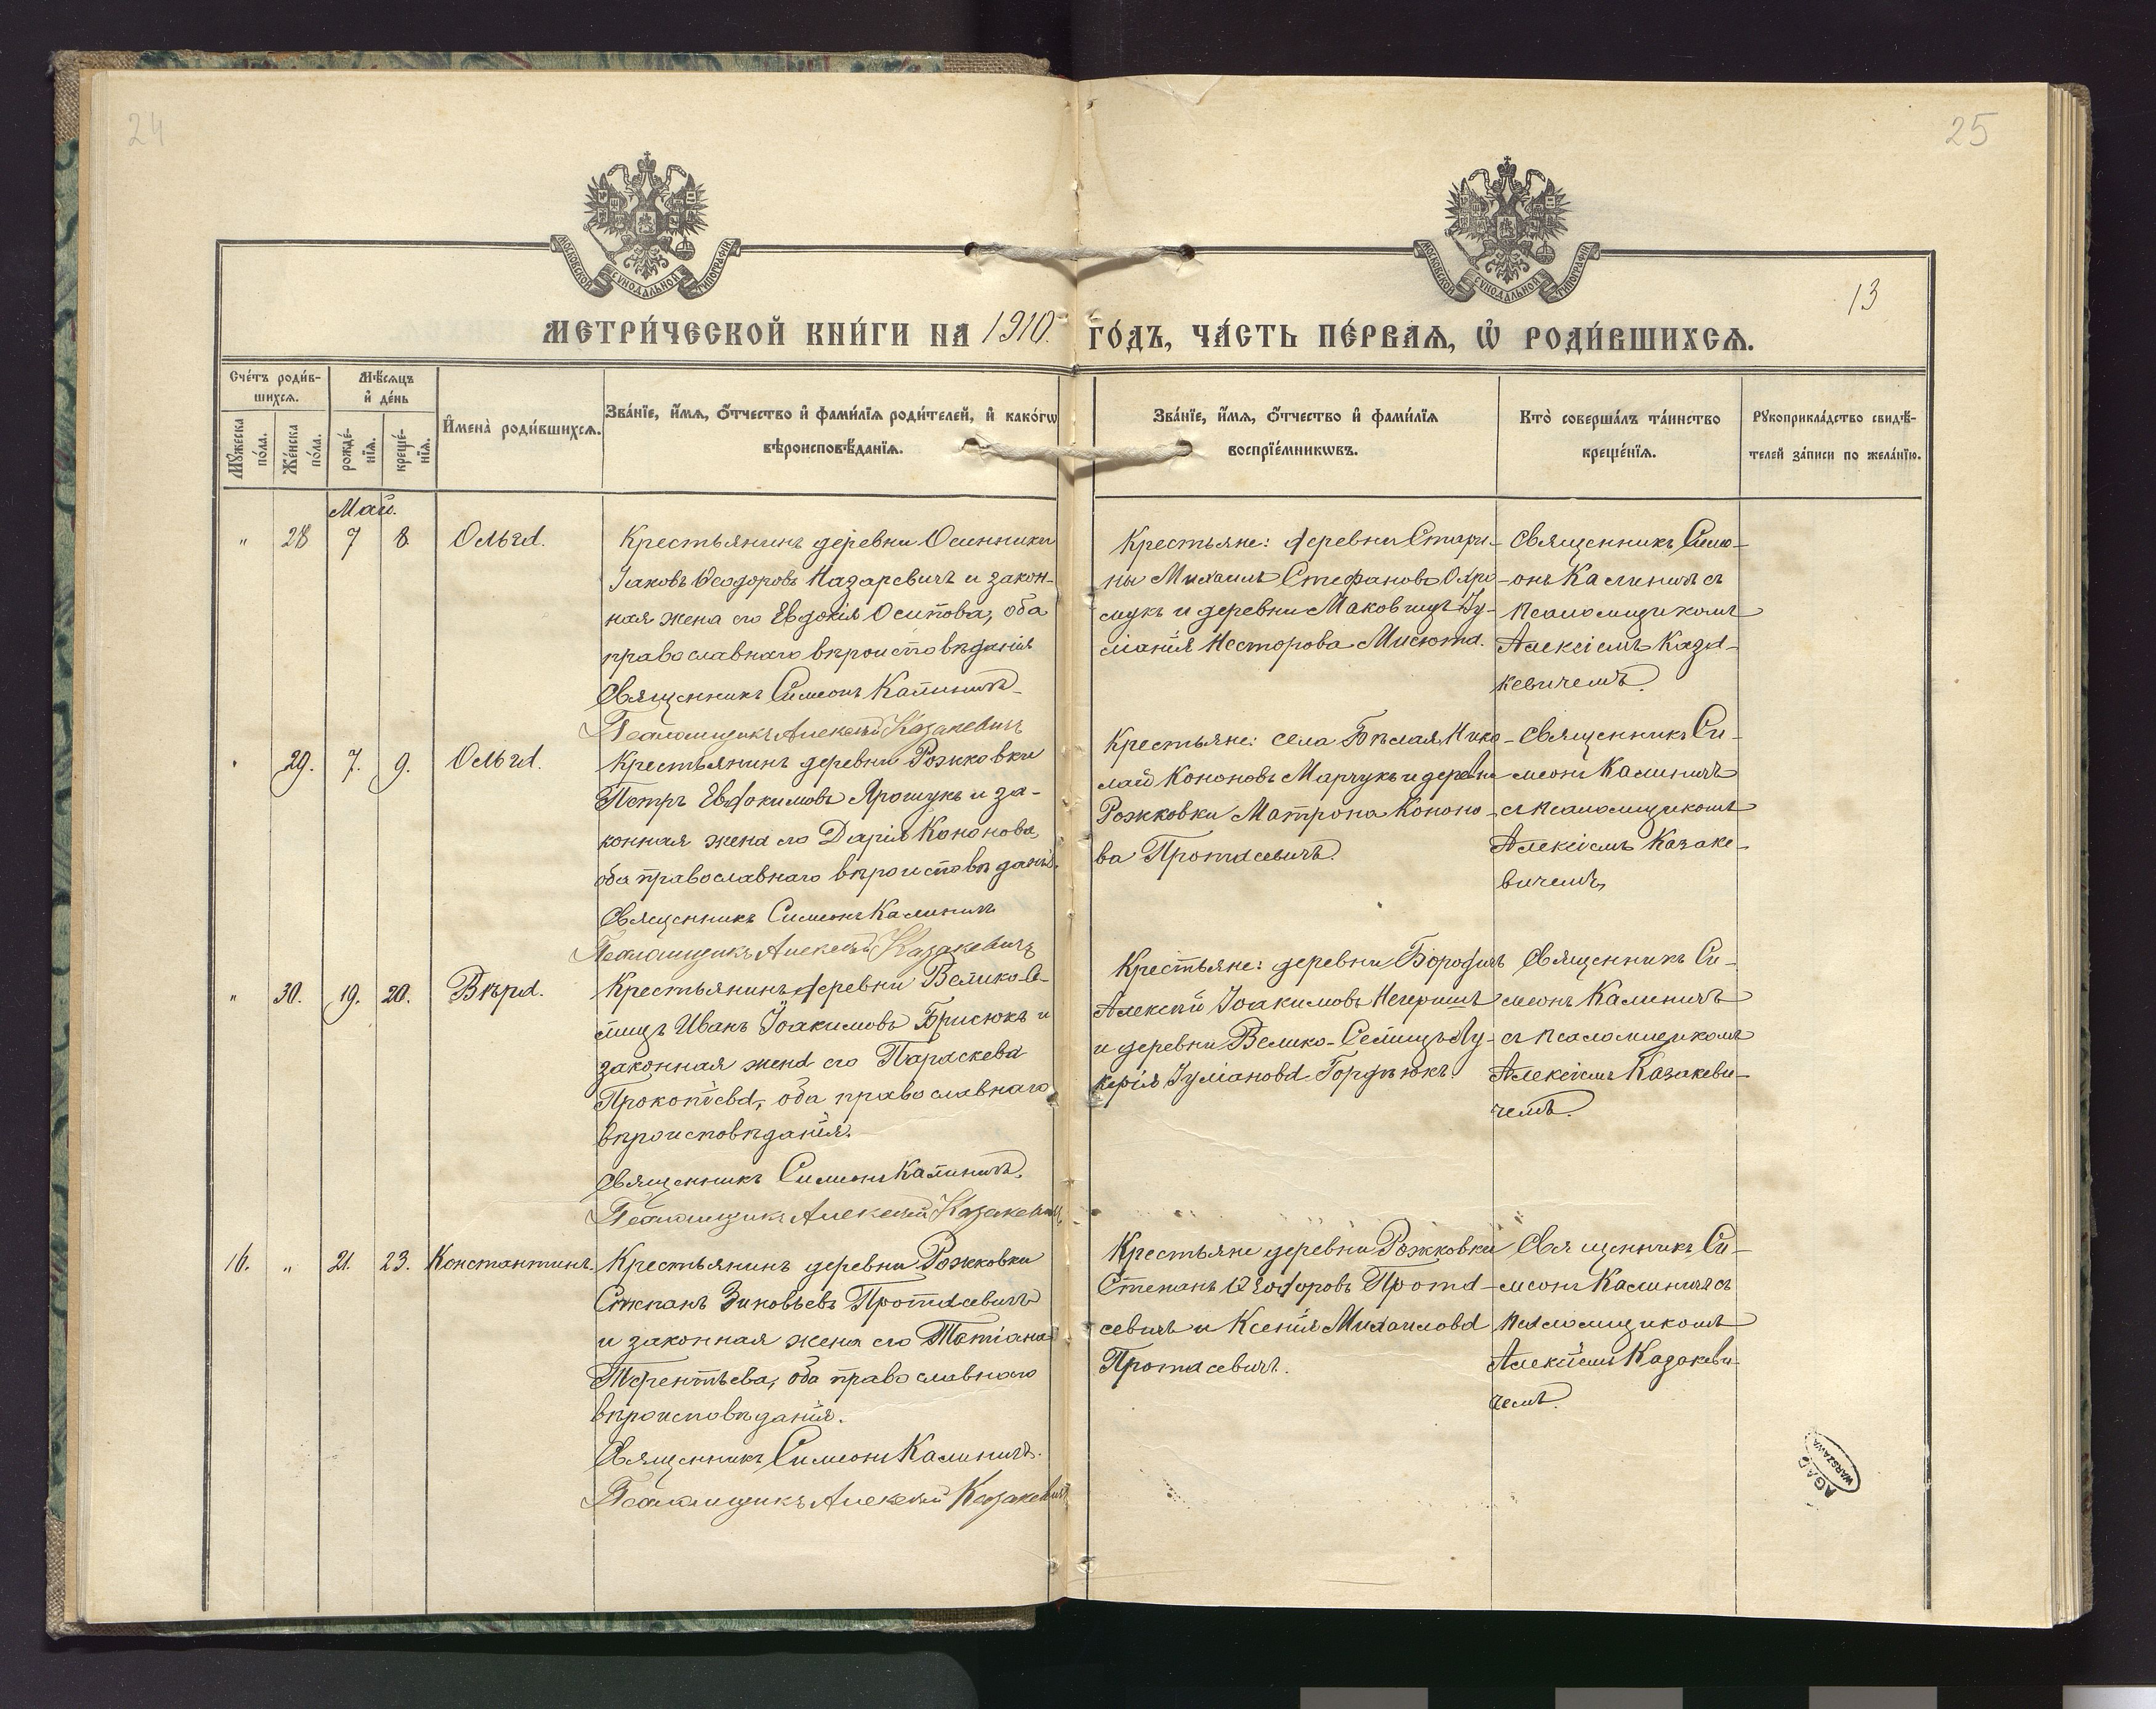 24
25
МОСКОВСКОЙ СѴНОДАЛЬНОЙ ТИПОГРАФІИ
МОСКОВСКОЙ СѴНОДАЛЬНОЙ ТИПОГРАФІИ
13
МЕТРИ́ЧЕСКОЙ КНИ́ГИ НА 1910. ГО́ДЪ, ЧА́СТЬ ПЕ́РВАѦ, Ѡ҆ РОДИ́ВШИХСѦ.
Сче́тъ роди́в-
шихсѧ.
Мꙋ́жеска по́ла.
Же́нска по́ла.
Мѣ́сѧцъ
и҆ де́нь
рожде́-
нїѧ.
креще́-
нїѧ.
И҆мена̀ роди́вшихсѧ.
Зва́нїе, и҆́мѧ, ѻ҆́тчество и҆ фами́лїѧ роди́телей, и҆ како́гѡ
вѣроисповѣ́данїѧ.
Зва́нїе, и҆́мѧ, ѻ҆́тчество и҆ фами́лїѧ
воспрїе́мникѡвъ.
Кто̀ соверша́лъ та́инство
креще́нїѧ.
Рꙋкоприкла́дство свидѣ́-
телей за́писи по жела́нїю.
Май.
" 28 7 8. Ольга.
Крестьянинъ деревни Осинники
Іаковъ Ѳеодоровъ Назаревичъ и закон-
ная жена его Евдокія Осипова, оба
православнаго вѣроисповѣданія
Священникъ Симеонъ Калиничъ
Псаломщикъ Алексій Казакевичъ
Крестьяне: деревни Стари-
ны Михаилъ Стефановъ Охри-
мукъ и деревни Маковищъ Іу-
ліанія Несторова Мисюта.
Священникъ Симе-
онъ Калиничъ съ
псаломщикомъ
Алексіемъ Каза-
кевичемъ.
" 29. 7. 9. Ольга.
Крестьянинъ деревни Рожковки
Петръ Евдокимовъ Ярошукъ и за-
конная жена его Дарія Кононова,
оба православнаго вѣроисповѣданія.
Священникъ Симеонъ Калиничъ
Псаломщикъ Алексій Казакевичъ
Крестьяне: села Бѣлая, Нико-
лай Кононовъ Марчукъ и деревни
Рожковки Матрона Кононо-
ва Протасевичъ.
Священникъ Си-
меонъ Калиничъ
съ псаломщикомъ
Алексіемъ Казаке-
вичемъ.
" 30. 19. 20. Вѣра.
Крестьянинъ деревни Велико-Се-
лищъ Иванъ Іоакимовъ Брисюкъ и
законная жена его Параскева
Прокопіева, оба православнаго
вѣроисповѣданія.
Священникъ Симеонъ Калиничъ.
Псаломщикъ Алексій Казакевичъ
Крестьяне: деревни Бородичъ
Алексій Іоакимовъ
и деревни Велико-Селищъ Лу-
керія Іуліанова Гордѣюкъ.
Священникъ Си-
меонъ Калиничъ
съ псаломщикомъ
Алексіемъ Казакеви-
чемъ.
16. " 21. 23. Константинъ.
Крестьянинъ деревни Рожковки
Степанъ Зиновьевъ Протасевичъ
и законная жена его Татіана
Терентьева, оба православнаго
вѣроисповѣданія.
Священникъ Симеонъ Калиничъ.
Псаломщикъ Алексій Казакевичъ
Крестьяне деревни Рожковки
Степанъ Ѳеодоровъ Прота-
севичъ и Ксенія Михаилова
Протасевичъ.
Священникъ Си-
меонъ Калиничъ съ
псаломщикомъ
Алексіемъ Казакеви-
чемъ.
AGAD
WARSZAWA